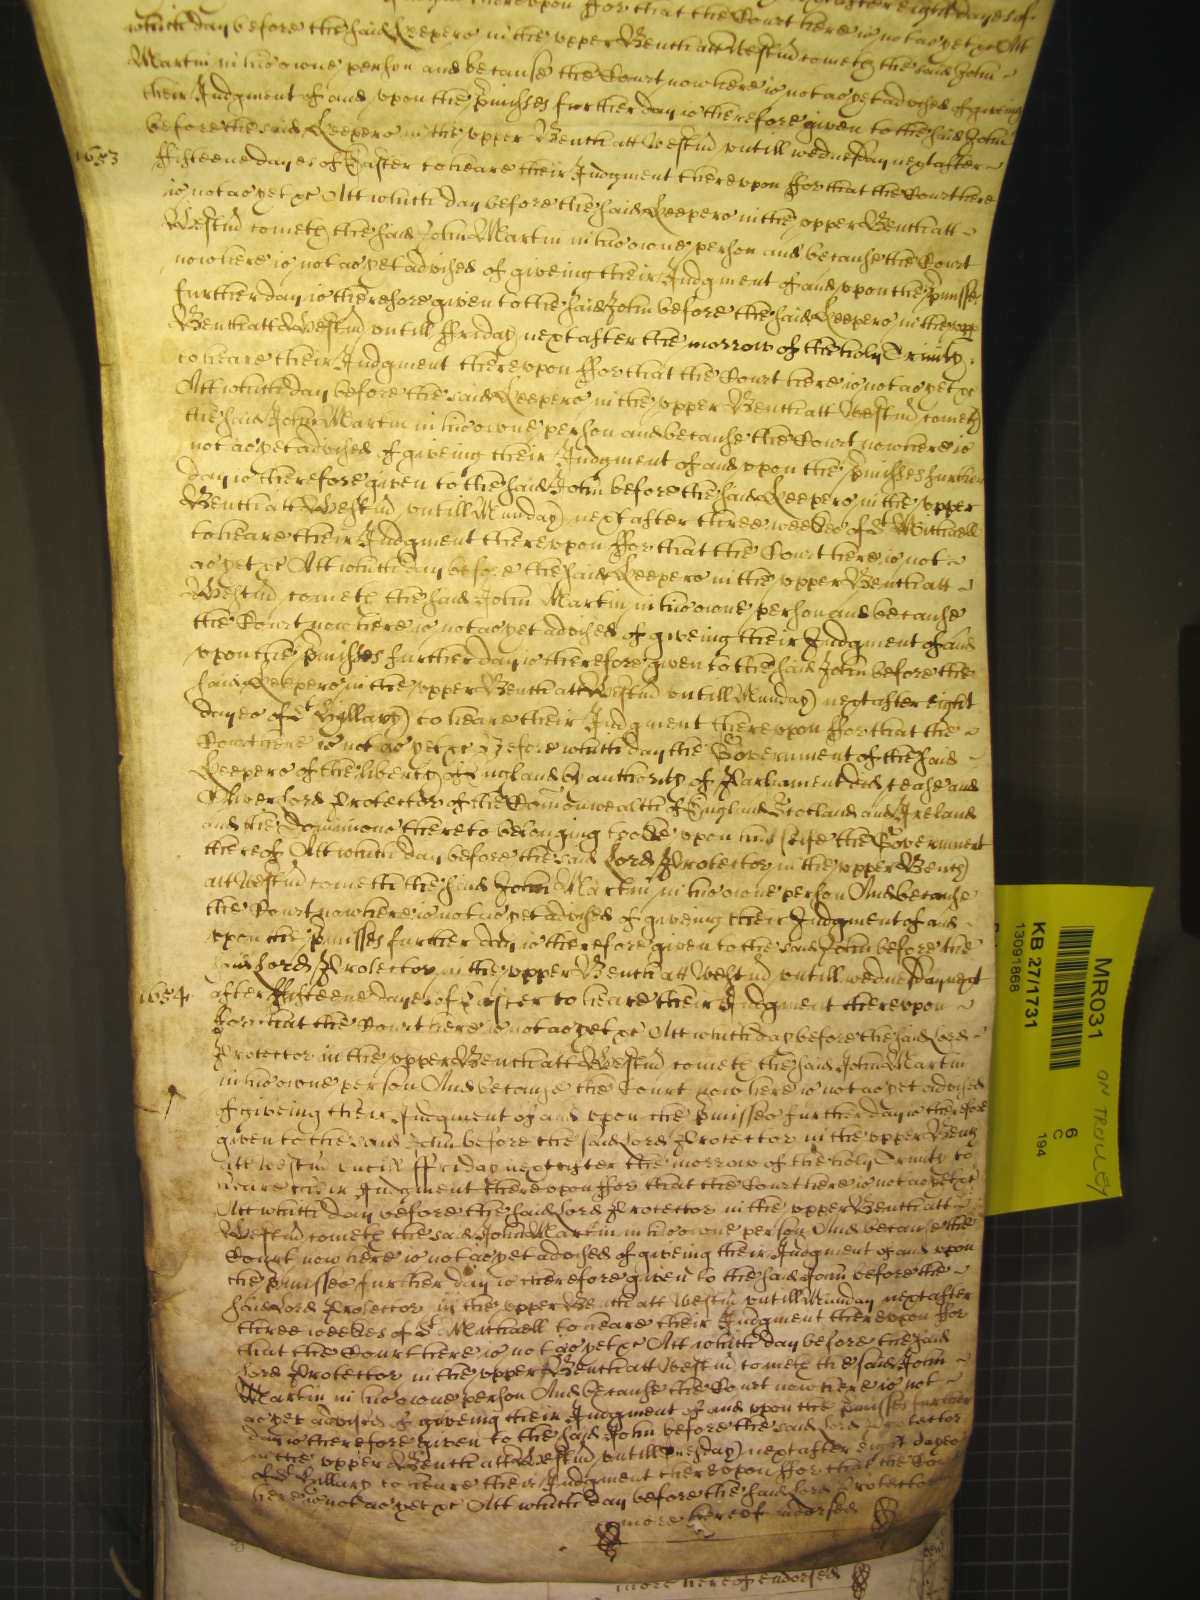 thereupon ffor that the Court here is not as yet &c Att
which day before the said Keepers in the upper Bench att Westm cometh the said John
Martin in his owne person and because the Court now here is not as yet advised of giveing
their Judgment of and upon the p'misses further day is therefore given to the said John
before the said Keepers in the upper Bench att Westm untill wednesday next after
1653
ffifteene dayes of Easter to heare their Judgment thereupon ffor that the Court here
is not as yet &c Att which day before the said Keepers in the upper Bench att
Westm cometh the said John Martin in his owne person and because the Court
now here is not as yet advised of giveing their Judgment of and upon the p'misses
further day is therefore given to the said John before the said Keepers in the upp
Bench att Westm untill ffriday next after the morrow of the holy Trinity
to heare their Judgment thereupon ffor that the Court here is not as yet &c
Att which day before the said Keepers in the upper Bench att Westm cometh
the said John Martin in his owne person and because the Court now here is
not as yet advised of giveing their Judgment of and upon the p'misses further
day is therefore given to the said John before the said Keepers in the upper
Bench att Westm untill Munday next after three weekes of St Michaell
to heare their Judgment thereupon ffor that the Court here is not
as yet &c Att which day before the said Keepers in the upper Bench att
Westm cometh the said John Martin in his owne person and because
the Court now here is not as yet advised of giveing their Judgment of and
upon the p'misses further day is therefore given to the said John before the
said Keepers in the upper Bench att Westm untill Munday next after eight
dayes of St Hillary to heare their Judgment thereupon ffor that the
Court here is not as yet &c Before which day the Government of the said
Keepers of the liberty of England by authority of Parliament did cease and
Oliver lord Protector of the Comonwealth of England Scotland and Ireland
and the Dominions thereto belonging tooke upon him selfe the Government
thereof Att which day before the said Lord Protector in the upper Bench
att Westm cometh the said John Martin in his owne person And because
the Court now here is not as yet advised of giveing their Judgment of and
upon the p'misses further day is therefore given to the said John before the
said Lord Protector in the upper Bench att Westm untill wednesday next
1654
after ffifteene dayes of Easter to heare their Judgment thereupon
ffor that the Court here is not as yet &c Att which day before the said Lord
Protector in the upper Bench att Westm cometh the said John Martin
in his owne person And because the Court now here is not as yet advised
of giveing their Judgment of and upon the p'misses further day is therefore
given to the said John before the said Lord Protector in the upper Bench
att Westm untill ffriday next after the morrow of the holy Trinity to
heare their Judgment thereupon ffor that the Court here is not as yet &c
Att which day before the said Lord Protector in the upper Bench att
Westm cometh the said John Martin in his owne person And because the
Court now here is not as yet advised of giveing their Judgment of and upon
the p'misses further day is therefore given to the said John before the
said Lord Protector in the upper Bench att Westm untill Munday next after
three weekes of St Michaell to heare their Judgment thereupon ffor
that the Court here is not as yet &c Att which day before the said
Lord Protector in the upper Bench att Westm cometh the said John
Martin in his owne person And because the Court now here is not
as yet advised of giveing their Judgment of and upon the p'misses further
day is therefore given to the said John before the said Lord Protector
in the upper Bench att Westm untill next after eight dayes
of St Hillary to heare their Judgment thereupon ffor that the Court
here is not as yet &c Att which day before the said Lord Protector
more hereof indorsed
more hereof endorsed
MR031
KB 27/1731
13091868
ON TROLLEY
6
C
194